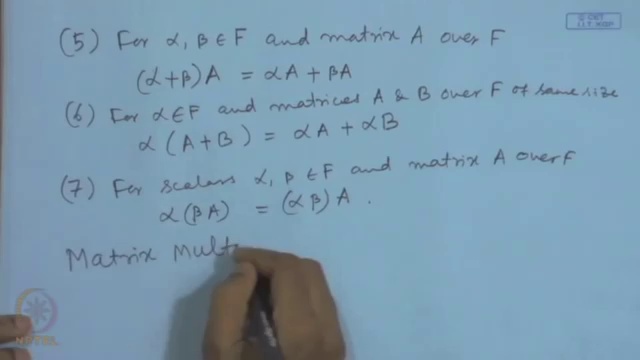 © CET
I.I.T. KGP
(5) For α, β ∈ F and matrix A over F
(α+β)A = αA + βA
(6) For α∈F and matrices A & B over F of same size
α (A+B) = αA + αB
(7) For scalars α, β ∈ F and matrix A over F
α(βA) = (αβ)A.
Matrix Mult
NPTEL